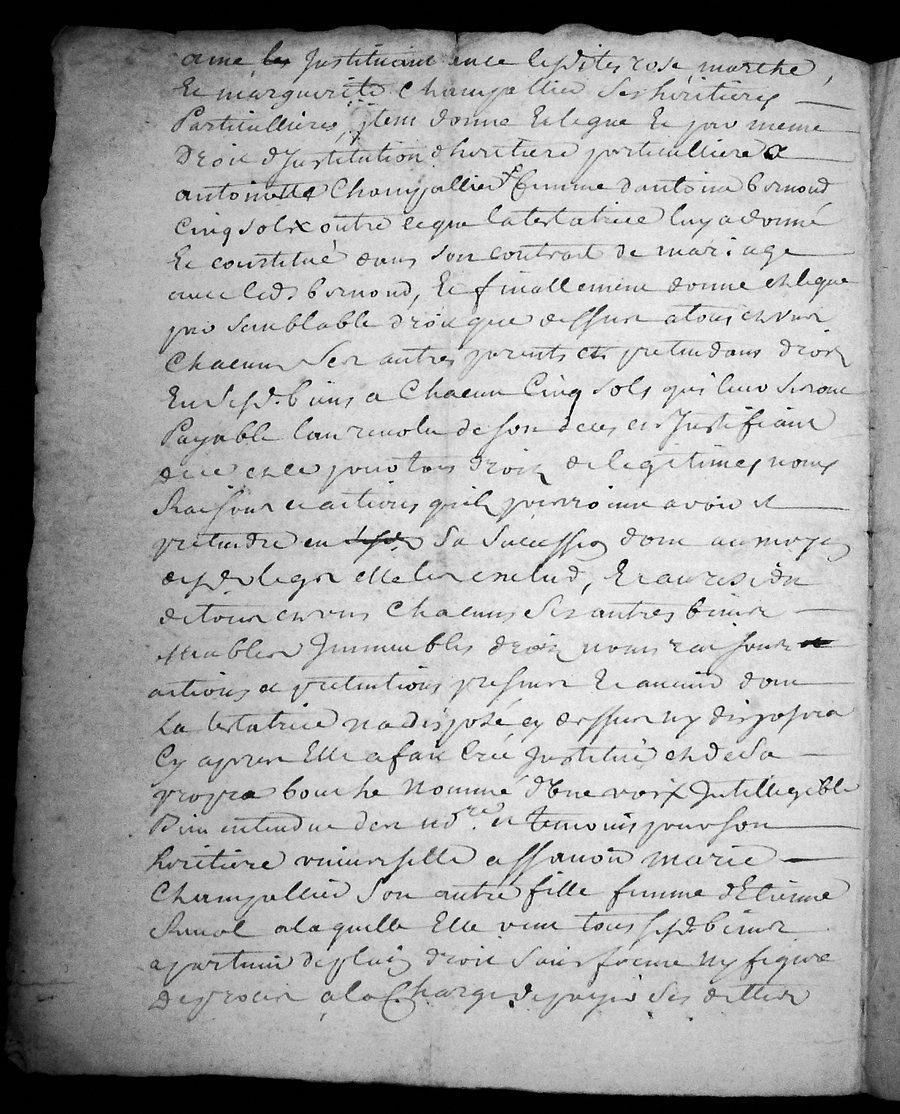 ame, les Instituant en ce lesdites rose, marthe,
Et marguerite Champallier ses heritieres
Particullieres, item donne Et legue Et par meme
Droit d'Institution d'heritiere particulliere a
antoinette Champallier femme d'antoine bornond
cinq sols outre ce que la testatrice luy a donné
Et constitué dans son contrait de mariage
avec led. bornond, Et finallement donne et legue
par semblable droit que dessus a tous et un
Chacuns Ses autres parents et pretendans droit
En sesd. biens a Chacun Cinq sols qui leur seront
Payable lan revolu de son deces en Justifiant
de ce et ce pour tous droits de legitimes noms
Raisons et actions quils pourroint avoir et
pretendre en sesd. Sa Sucession dont au moyen
desd. legs elle les exclud, Et au residu
de tous et uns Chacuns Ses autres biens
Meubles Immeubles droits noms raisons et
actions et pretentions presens Et avenir dont
La testatrice na disposé cy dessus ny disposera
Cy apres Elle a fait Créé Institué et de Sa
propre bouche Nommé d'une voix Intelligible
Bien entendue de nd. re et temoins pour son
heritiere universelle a ssavoir marie
Champallier Son autre fille femme d'Etienne
a laquelle Elle veut tous sesd. biens
apartenir de plain droit Sans forme ny figure
De proces a la Charge de payer Ses dettes